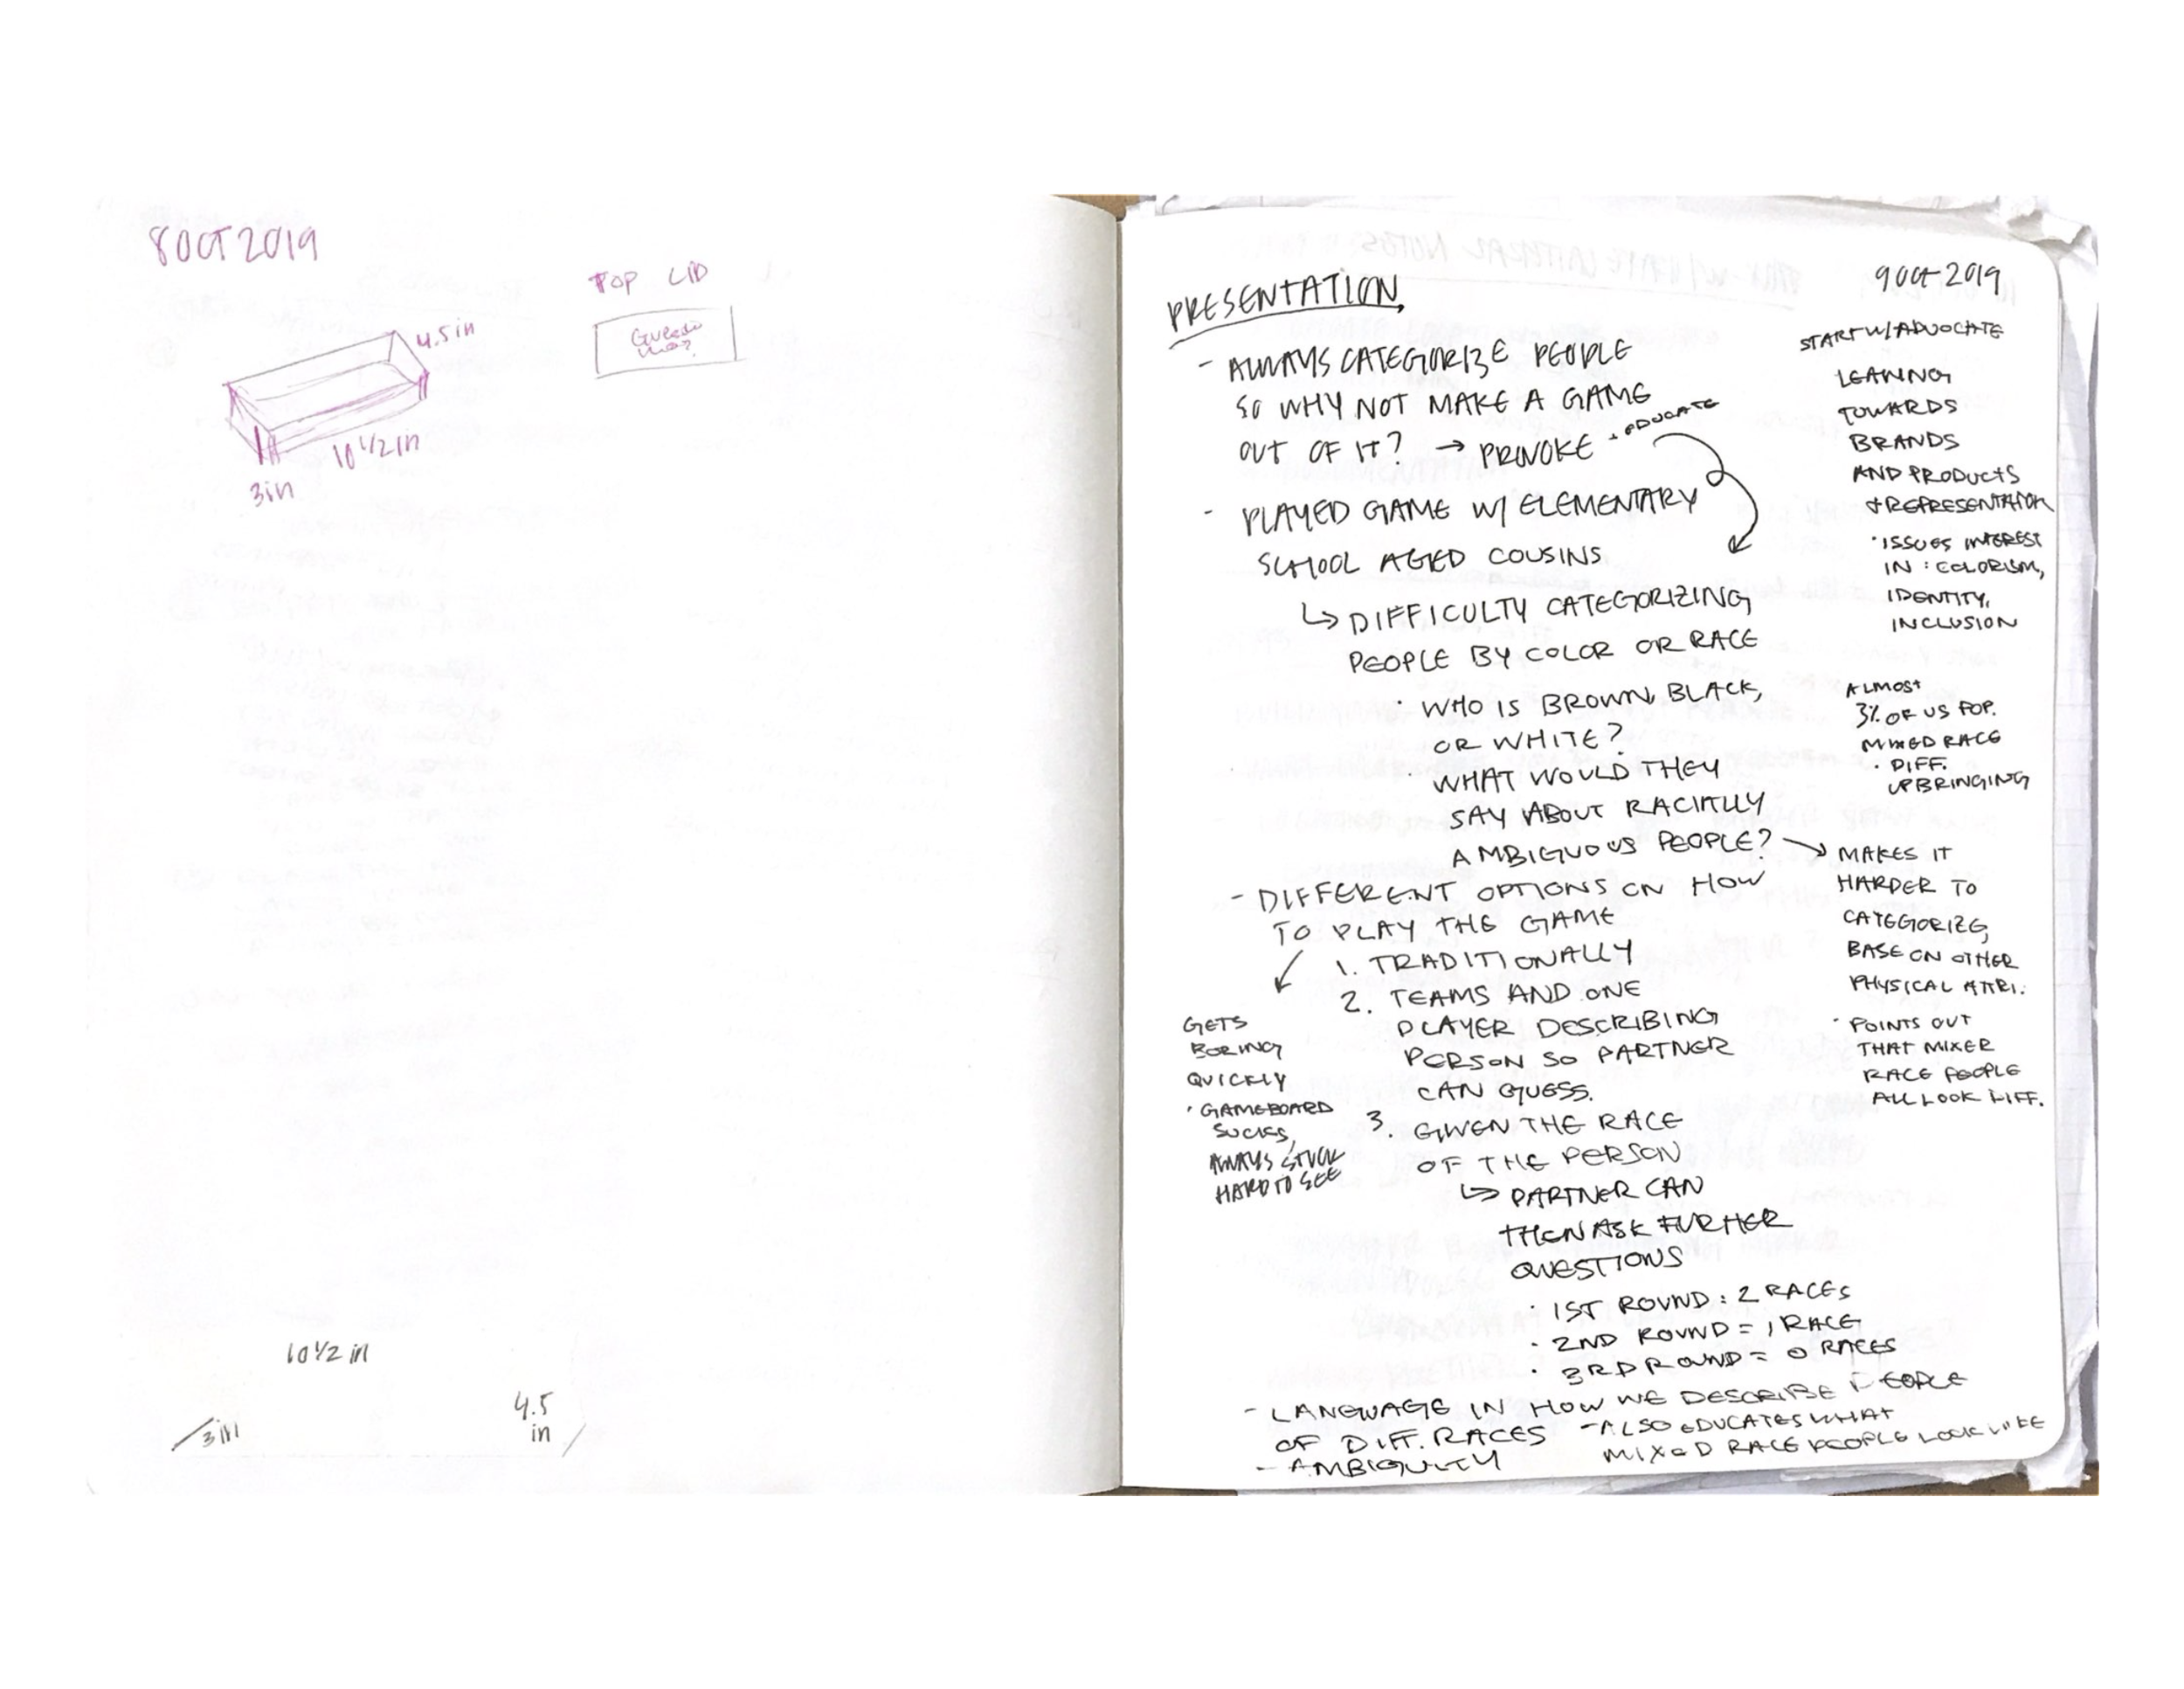 8 OCT 2019
TOP LID
Guess
who?
4.5 in
10 1/2 in
3in
10 1/2 in
4.5
in
3in
9 Oct 2019
PRESENTATION
- ALWAYS CATEGORIZE PEOPLE
SO WHY NOT MAKE A GAME
OUT OF IT? → PROVOKE + EDUCATE
- PLAYED GAME W/ ELEMENTARY
SCHOOL AGED COUSINS
↳ DIFFICULTY CATEGORIZING
PEOPLE BY COLOR OR RACE
• WHO IS BROWN, BLACK,
OR WHITE?
• WHAT WOULD THEY
SAY ABOUT RACIALLY
AMBIGUOUS PEOPLE? →
- DIFFERENT OPTIONS ON HOW
TO PLAY THE GAME
1. TRADITIONALLY
2. TEAMS AND ONE
PLAYER DESCRIBING
PERSON SO PARTNER
CAN GUESS.
3. GIVEN THE RACE
OF THE PERSON
↳ PARTNER CAN
THEN ASK FURTHER
QUESTIONS
• 1ST ROUND: 2 RACES
• 2ND ROUND = 1 RACE
• 3RD ROUND = 0 RACES
- LANGUAGE IN HOW WE DESCRIBE PEOPLE
OF DIFF. RACES
- AMBIGUITY
- ALSO EDUCATES WHAT
MIXED RACE PEOPLE LOOK LIKE
GETS
BORING
QUICKLY
• GAMEBOARD
SUCKS,
ALWAYS STUCK
HARD TO SEE
START W/ ADVOCATE
LEANING
TOWARDS
BRANDS
AND PRODUCTS
+ REPRESENTATION
• ISSUES INTEREST
IN: COLORISM,
IDENTITY,
INCLUSION
ALMOST
3% OF US POP.
MIXED RACE
• DIFF.
UPBRINGING
MAKES IT
HARDER TO
CATEGORIZE,
BASE ON OTHER
PHYSICAL ATTRI.
• POINTS OUT
THAT MIXER
RACE PEOPLE
ALL LOOK DIFF.